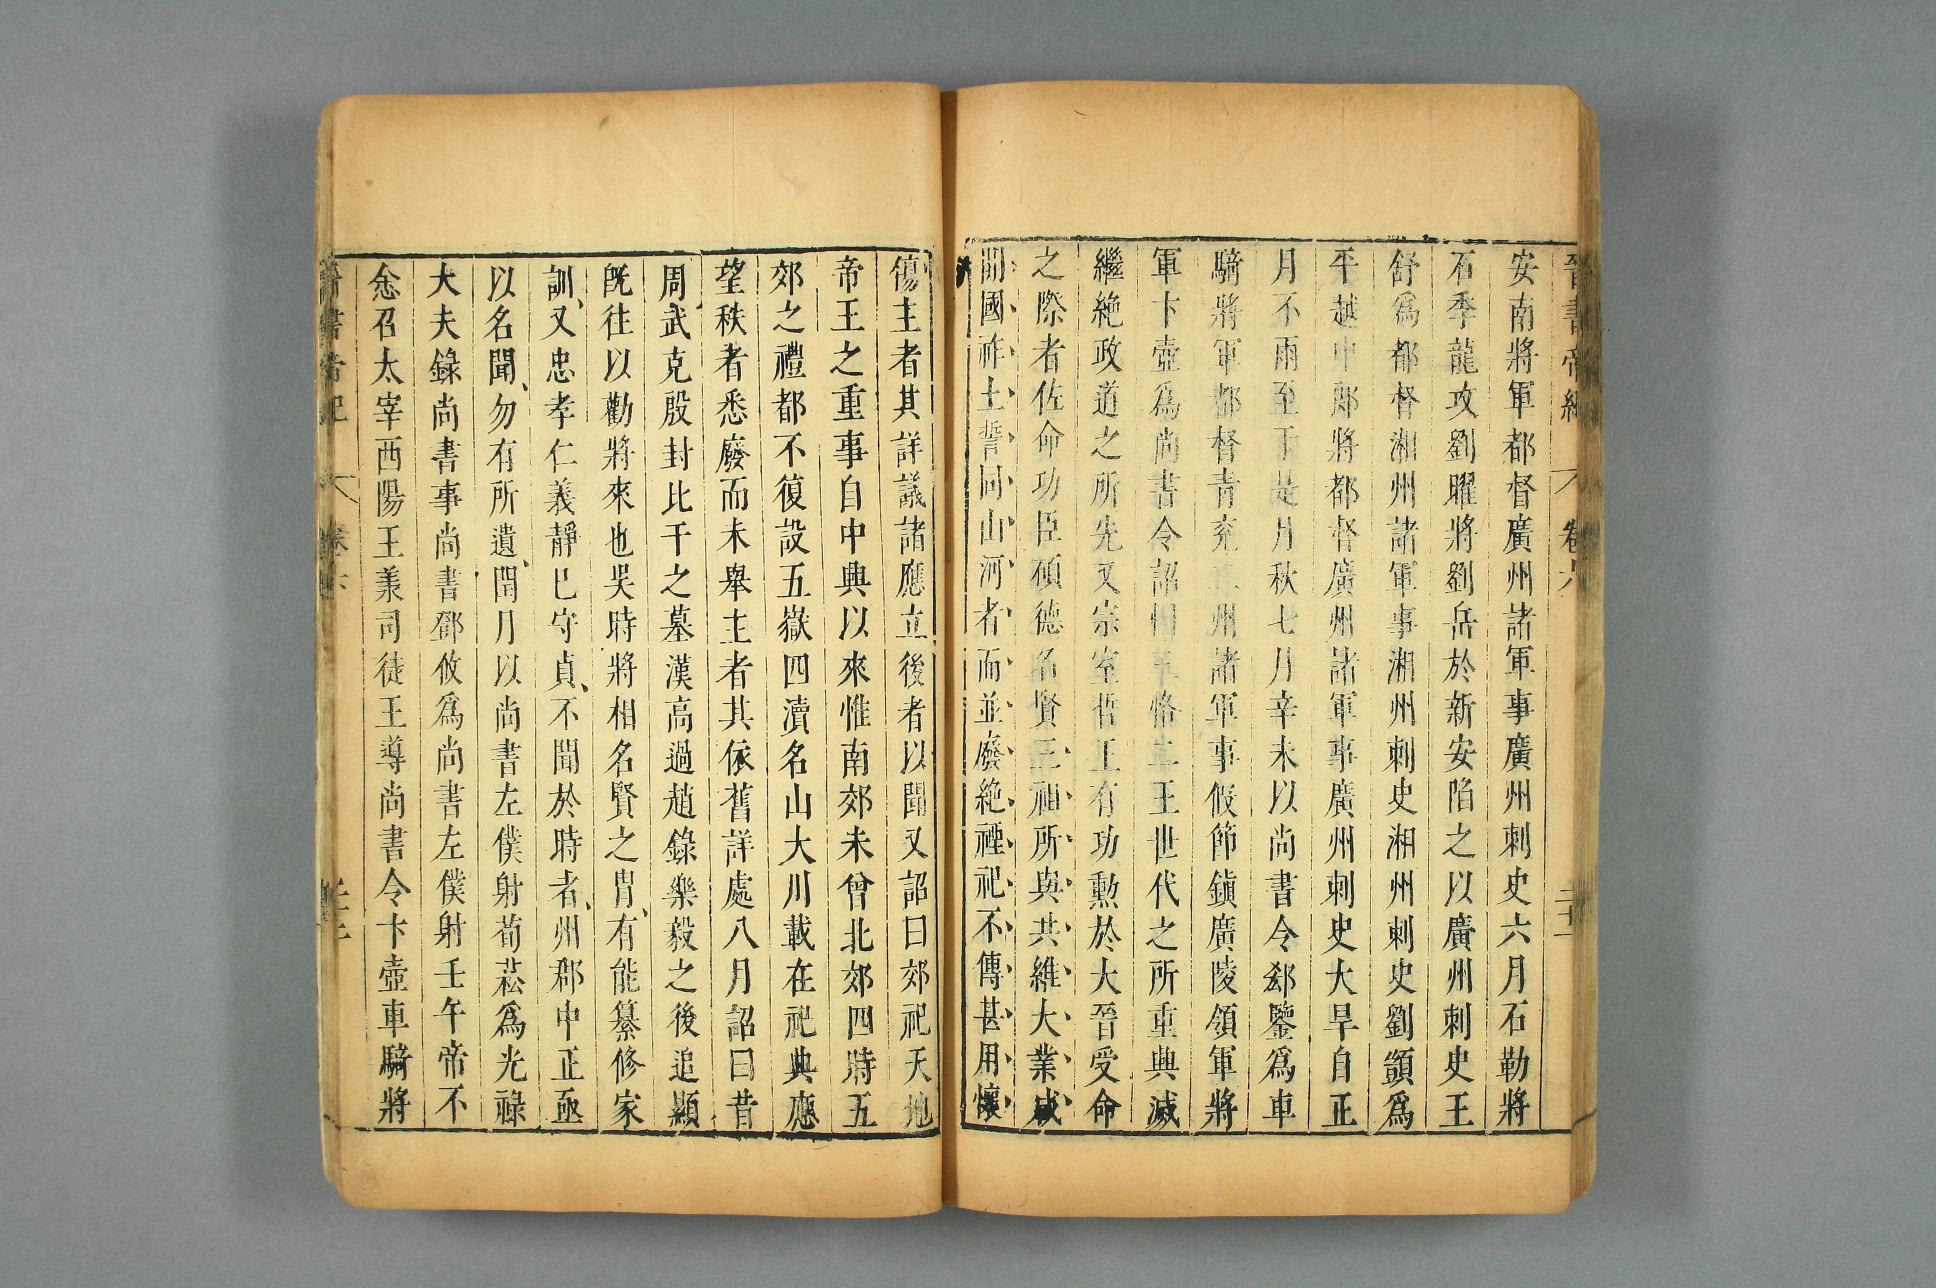 晉書帝紀 卷六 二十一
安南將軍都督廣州諸軍事廣州刺史六月石勒將
石季龍攻劉曜將劉岳於新安陷之以廣州刺史王
舒爲都督湘州諸軍事湘州刺史湘州刺史劉顗爲
平越中郎將都督廣州諸軍事廣州刺史大旱自正
月不雨至于是月秋七月辛未以尚書令郄鑒爲車
騎將軍都督青兗二州諸軍事假節鎮廣陵領軍將
軍卞壺爲尚書令詔曰三恪二王世代之所重興滅
繼絶政道之所先又宗室哲王有功勲於大晉受命
之際者佐命功臣碩德名賢三祖所與共維大業咸
開國祚土誓同山河者而並廢絶禋祀不傳甚用懷
傷主者其詳議諸應立後者以聞又詔曰郊祀天地
帝王之重事自中興以來惟南郊未曾北郊四時五
郊之禮都不復設五嶽四瀆名山大川載在祀典應
望秩者悉廢而未舉主者其依舊詳處八月詔曰昔
周武克殷封比干之墓漢高過趙錄樂毅之後追顯
旣往以勸將來也吳時將相名賢之冑有能纂修家
訓又忠孝仁義靜己守貞不聞於時者州郡中正亟
以名聞勿有所遺閏月以尚書左僕射荀菘爲光祿
大夫錄尚書事尚書鄧攸爲尚書左僕射壬午帝不
悆召太宰西陽王羕司徒王導尚書令卞壺車騎將
卷六